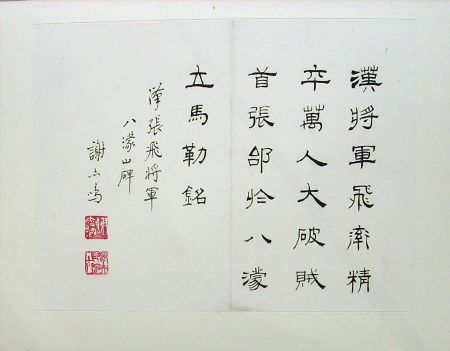 漢將軍飛率精
卒萬人大破賊
首張郃於八濛
立馬勒銘
漢張飛將軍
八濛山碑
謝